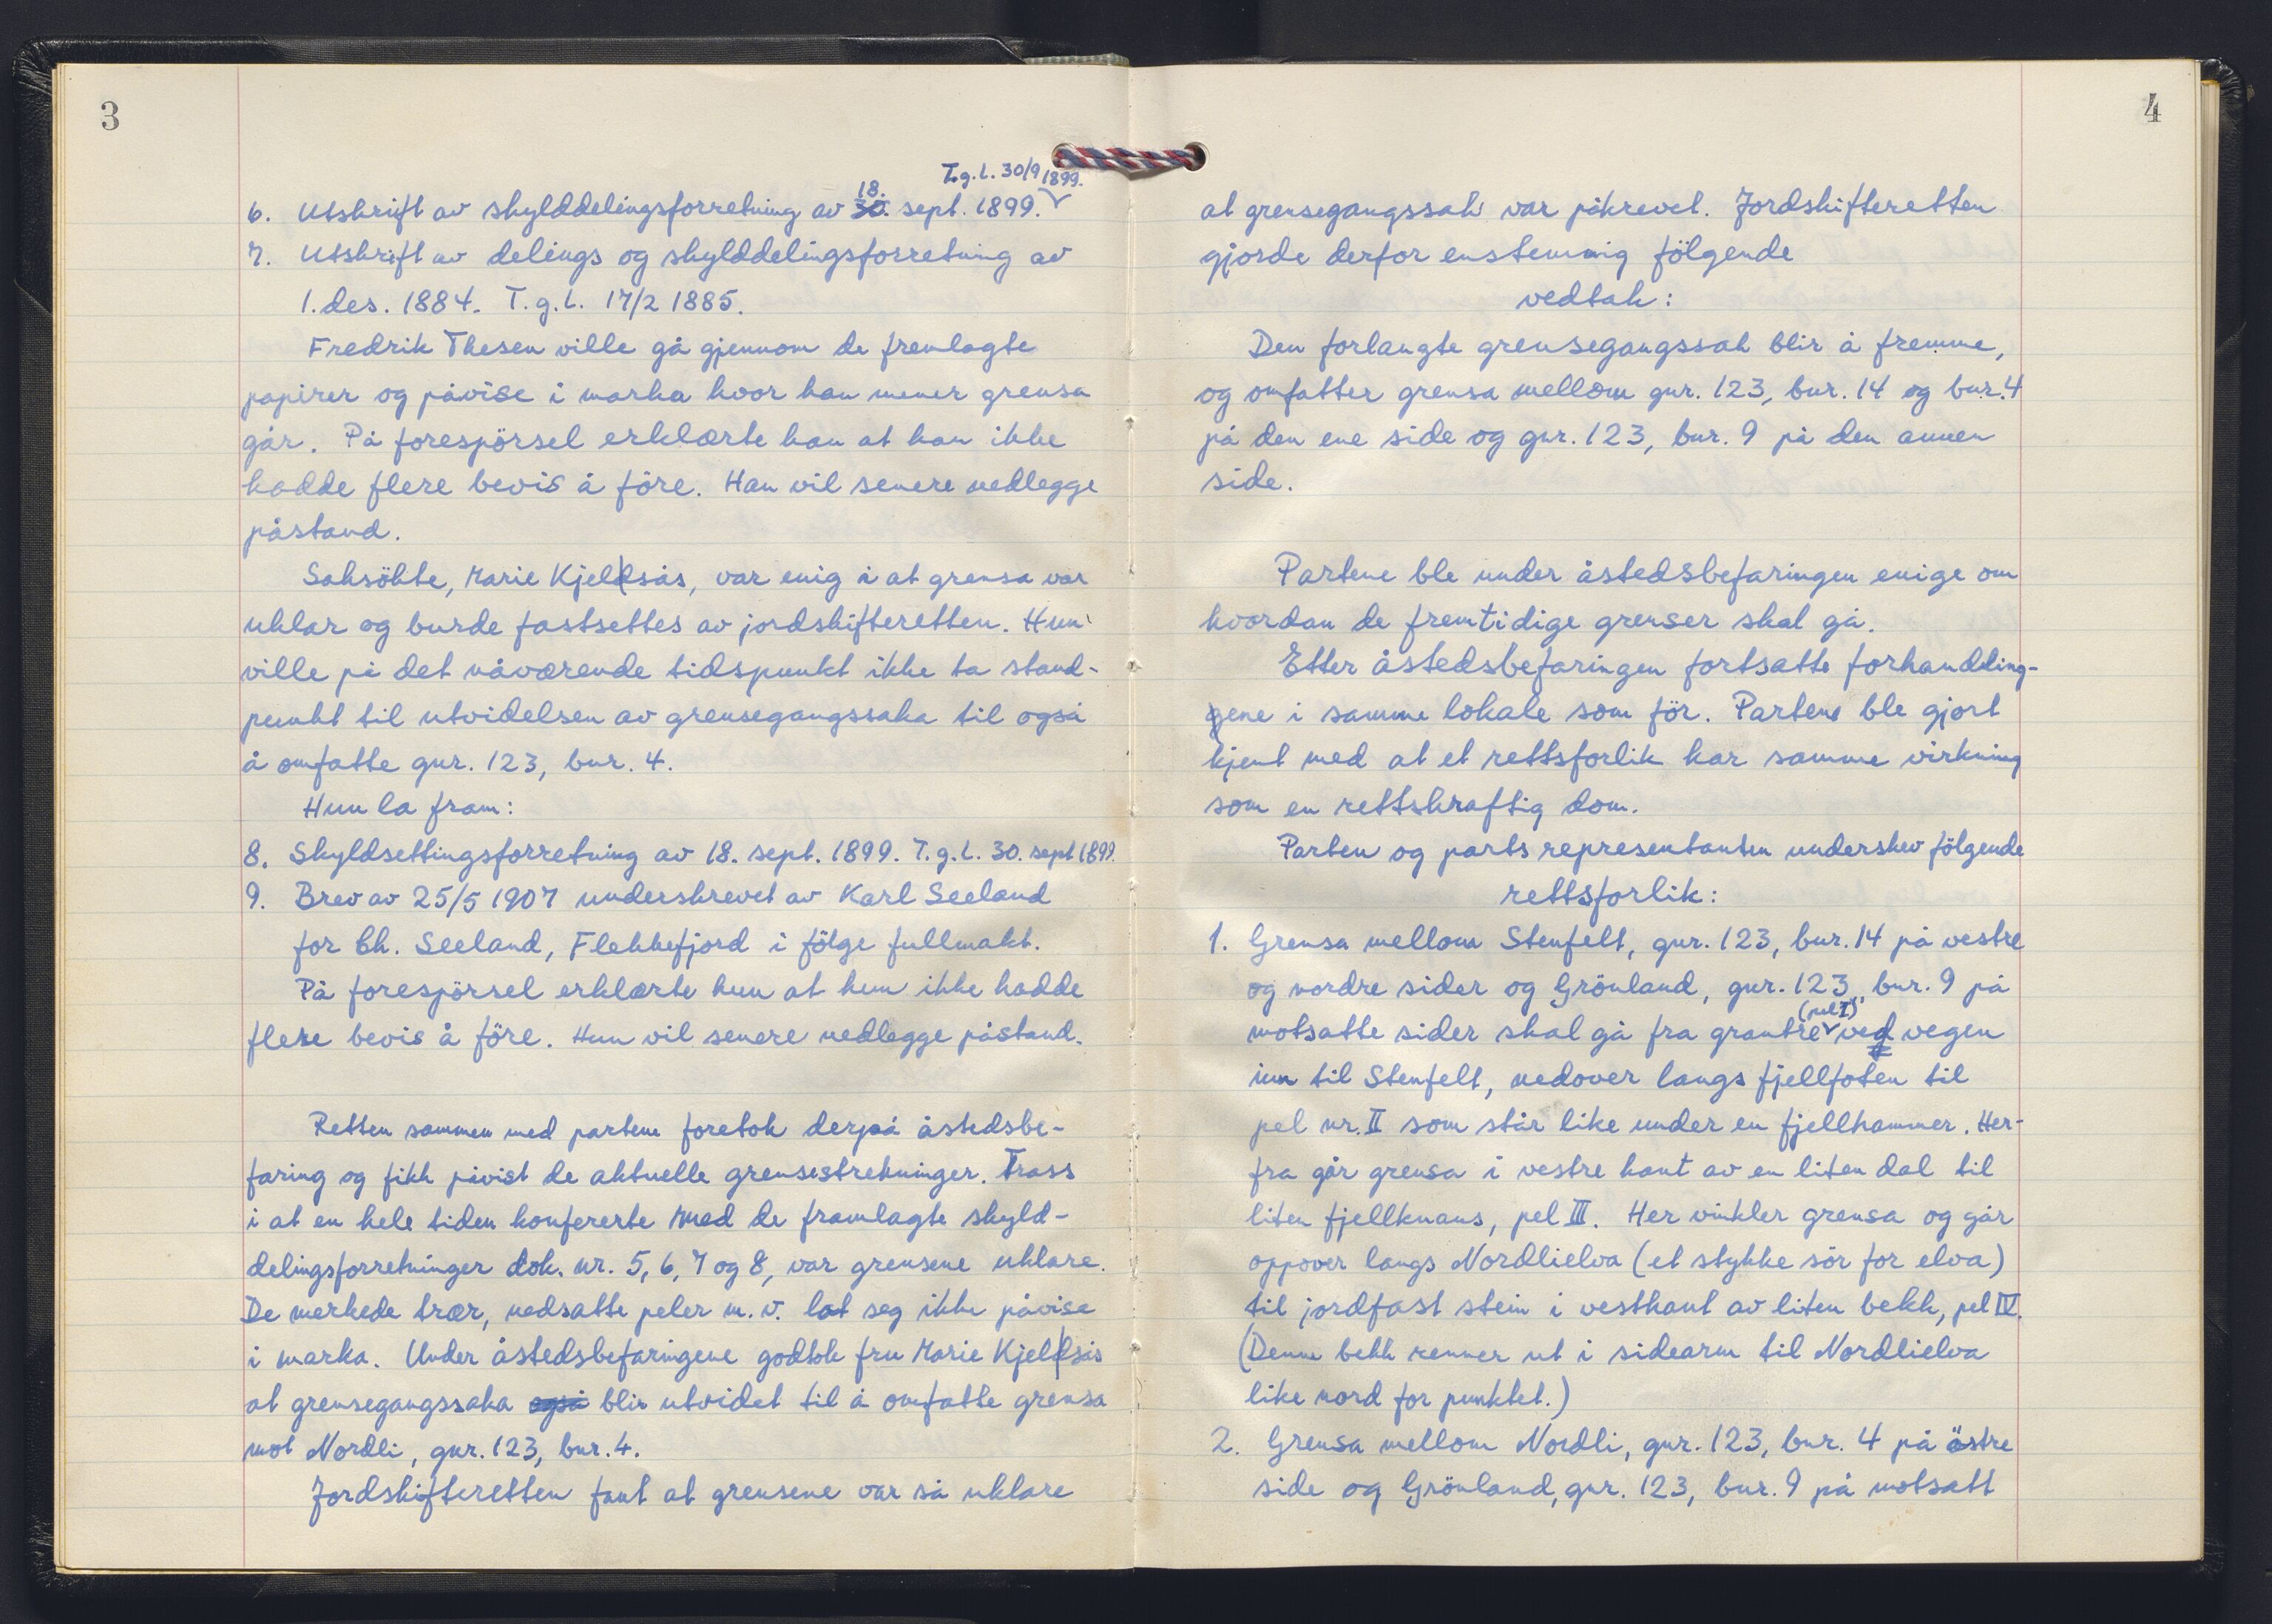 3
T.g.l. 30/9 1899.
18.
6. Utskrift av skylddelingsforretning av 30. sept. 1899.
7. Utskrift av delings og skylddelingsforretning av
1. des. 1884. T.g.l. 17/2 1885.
Fredrik Thesen ville gå gjennom de fremlagte
papirer og påvise i marka hvor han mener grensa
går. På forespörsel erklærte han at han ikke
hadde flere bevis å före. Han vil senere nedlegge
påstand.
Saksökte, Marie Kjeldsås, var enig i at grensa var
uklar og burde fastsettes av jordskifteretten. Hun
ville på det nåværende tidspunkt ikke ta stand-
punkt til utvidelsen av grensegangssaka til også
å omfatte gnr. 123, bnr. 4.
Hun la fram:
8. Skyldsettingsforretning av 18. sept. 1899. T.g.l. 30. sept 1899.
9. Brev av 25/5 1907 underskrevet av Karl Seeland
for Ch. Seeland, Flekkefjord i fölge fullmakt.
På forespörsel erklærte hun at hun ikke hadde
flere bevis å före. Hun vil senere nedlegge påstand.
Retten sammen med partene foretok derpå åstedsbe-
faring og fikk påvist de aktuelle grensestrekninger. Trass
i at en hele tiden konfererte med de framlagte skyld-
delingsforretninger dok. nr. 5, 6, 7 og 8, var grensene uklare.
De merkede trær, nedsatte peler m.v. lot seg ikke påvise
i marka. Under åstedsbefaringene godtok fru Marie Kjeldsås
at grensegangssaka også blir utvidet til å omfatte grensa
mot Nordli, gnr. 123, bnr. 4.
Jordskifteretten fant at grensene var så uklare
4
at grensegangssak var påkrevet. Jordskifteretten
gjorde derfor enstemmig fölgende
vedtak:
Den forlangte grensegangssak blir å fremme,
og omfatter grensa mellom gnr. 123, bnr. 14 og bnr. 4
på den ene side og gnr. 123, bnr. 9 på den annen
side.
Partene ble under åstedsbefaringen enige om
hvordan de fremtidige grenser skal gå.
Etter åstedsbefaringen fortsatte forhandling-
gene i samme lokale som för. Partene ble gjort
kjent med at et rettsforlik har samme virkning
som en rettskraftig dom.
Parten og partsrepresentanten underskev fölgende
rettsforlik:
1. Grensa mellom Stenfelt, gnr. 123, bnr. 14 på vestre
og nordre sider og Grönland, gnr. 123, bnr. 9 på
(pel I)
motsatte sider skal gå fra grantre ved vegen
inn til Stenfelt, nedover langs fjellfoten til
pel nr. II som står like under en fjellhammer. Her-
fra går grensa i vestre kant av en liten dal til
liten fjellknaus, pel III. Her vinkler grensa og går
oppover langs Nordlielva (et stykke sör for elva)
til jordfast stein i vestkant av liten bekk, pel IV.
(Denne bekk renner ut i sidearm til Nordlielva
like nord for punktet.)
2. Grensa mellom Nordli, gnr. 123, bnr. 4 på östre
side og Grönland, gnr. 123, bnr. 9 på motsatt